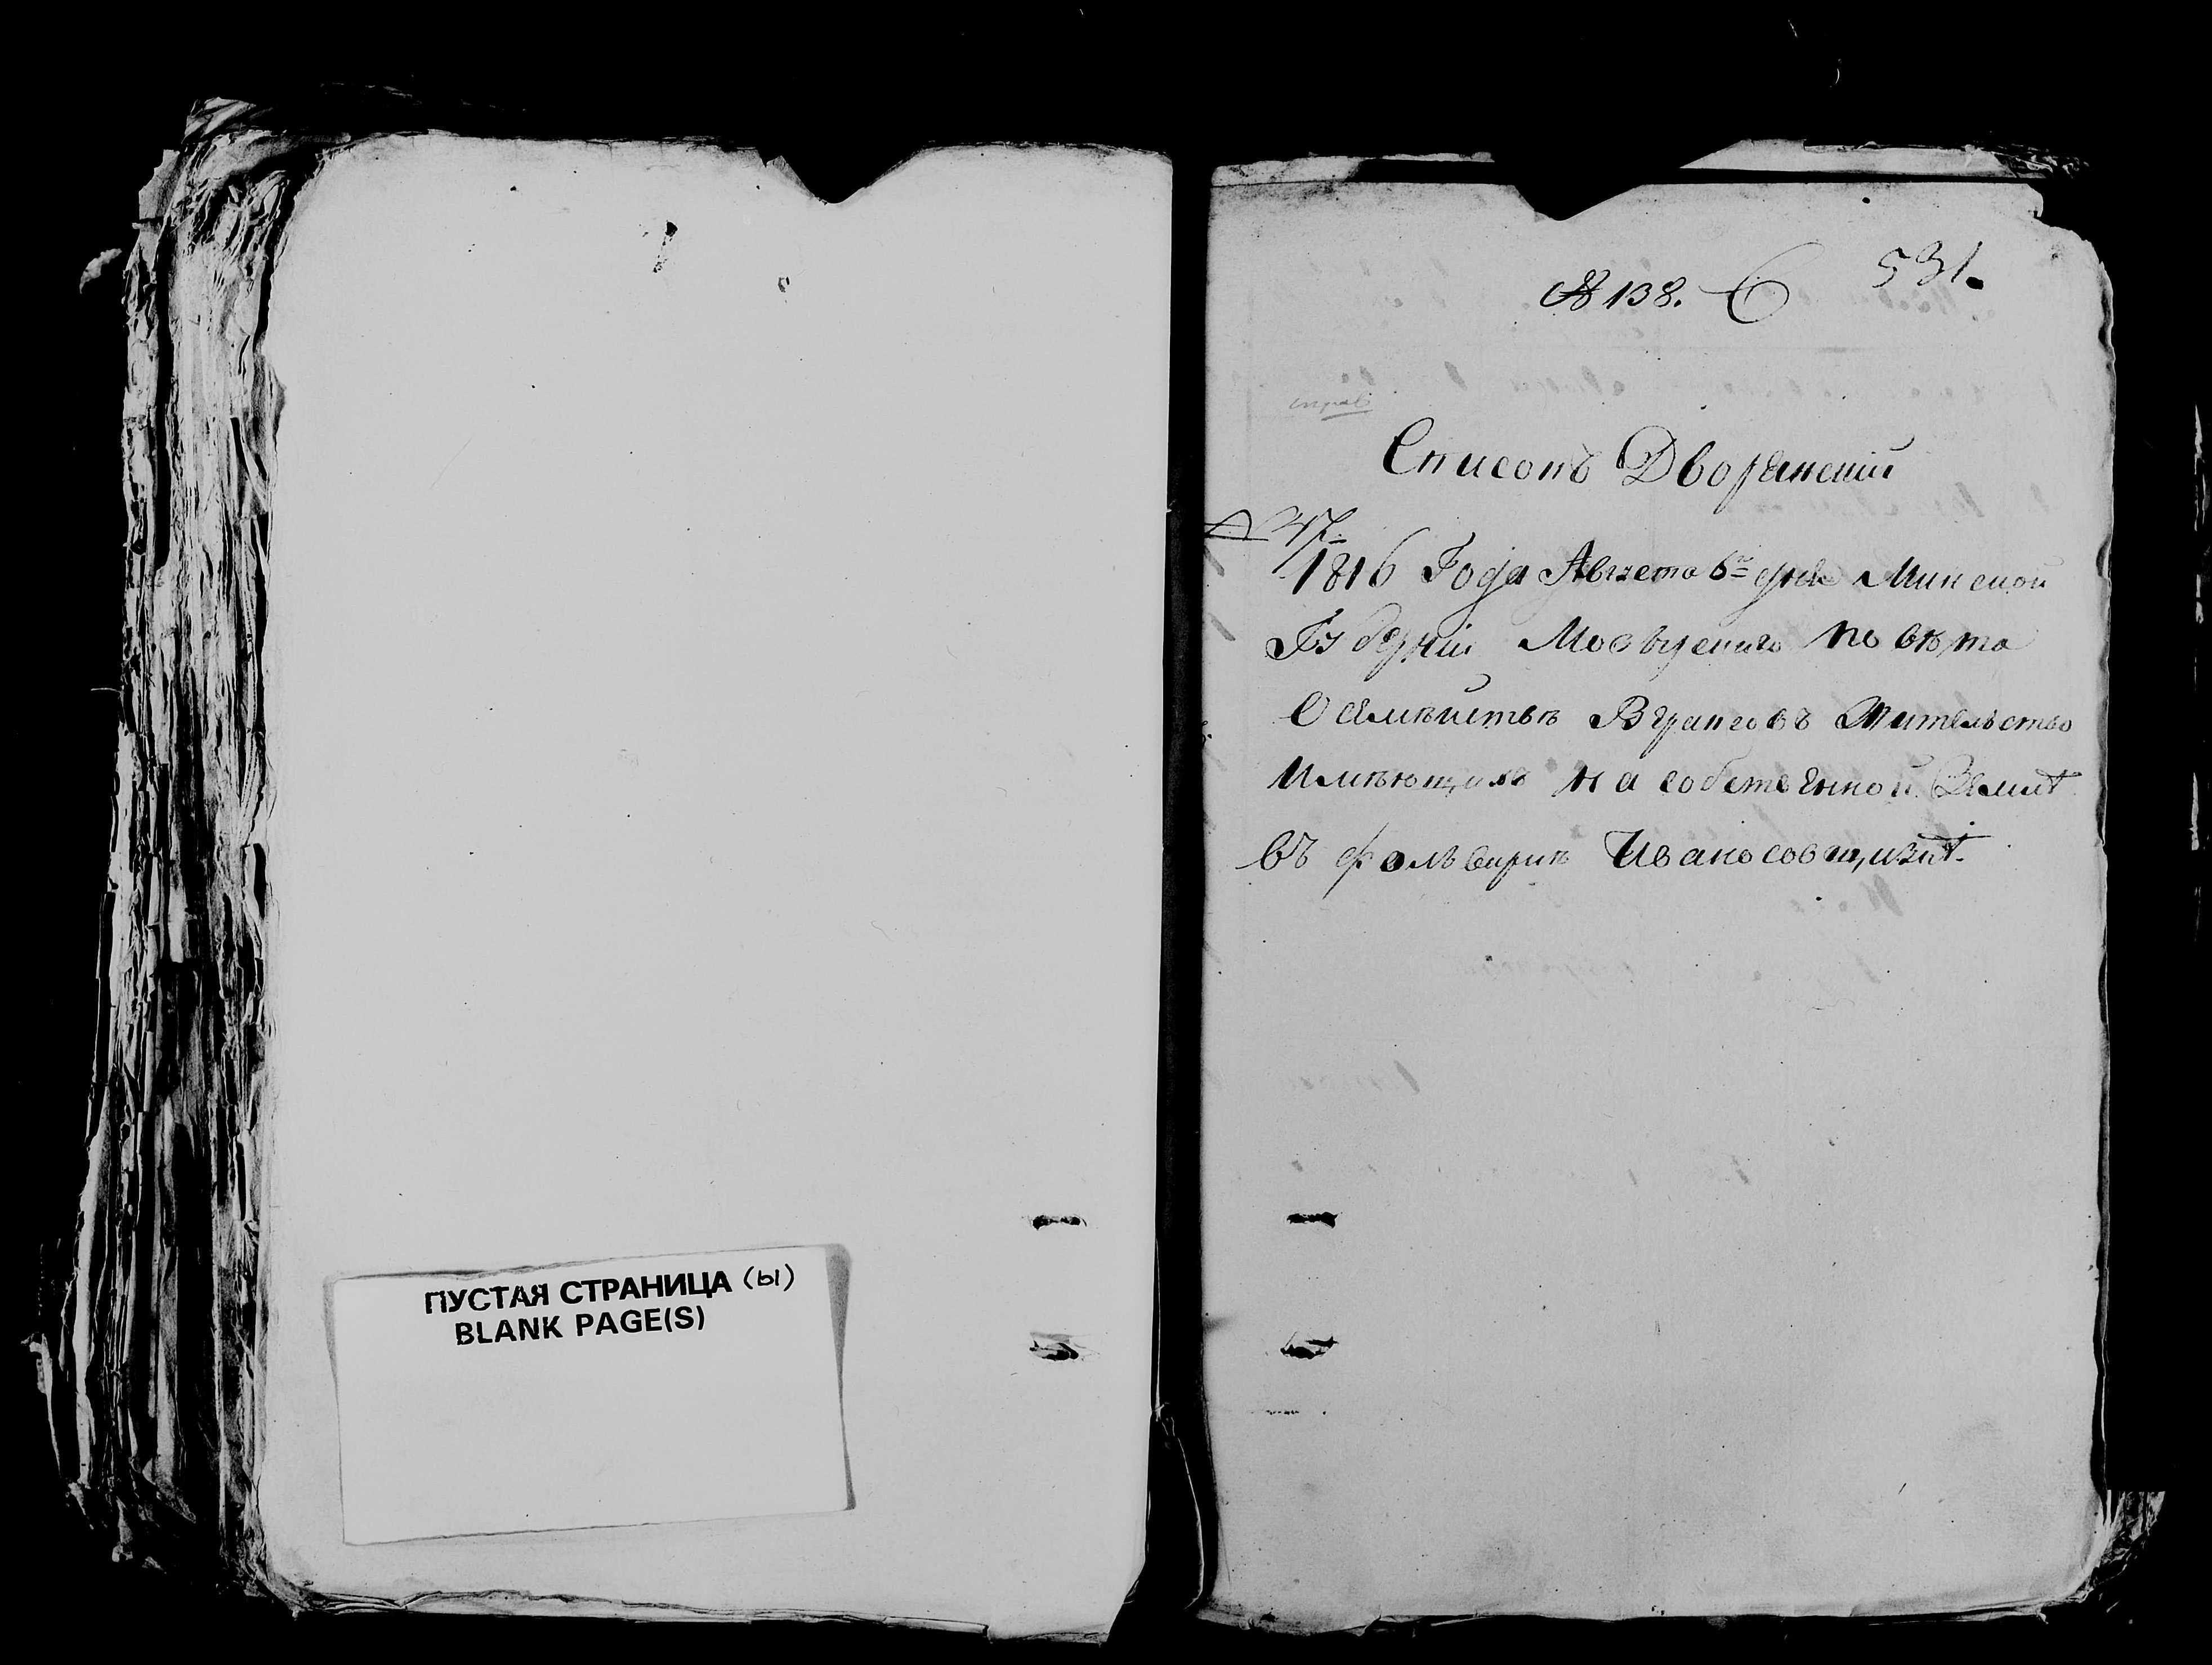 ПУСТАЯ СТРАНИЦА (ы)
BLANK PAGE(S)
№ 138.
531.
Списокъ Дворянскій
№ 47.
1816 Года Августа 6го дня Минской
Губерніи Мозырского повѣта
О семѣйствѣ жительство
имѣющихъ на собственной Землѣ
въ фольваркѣ